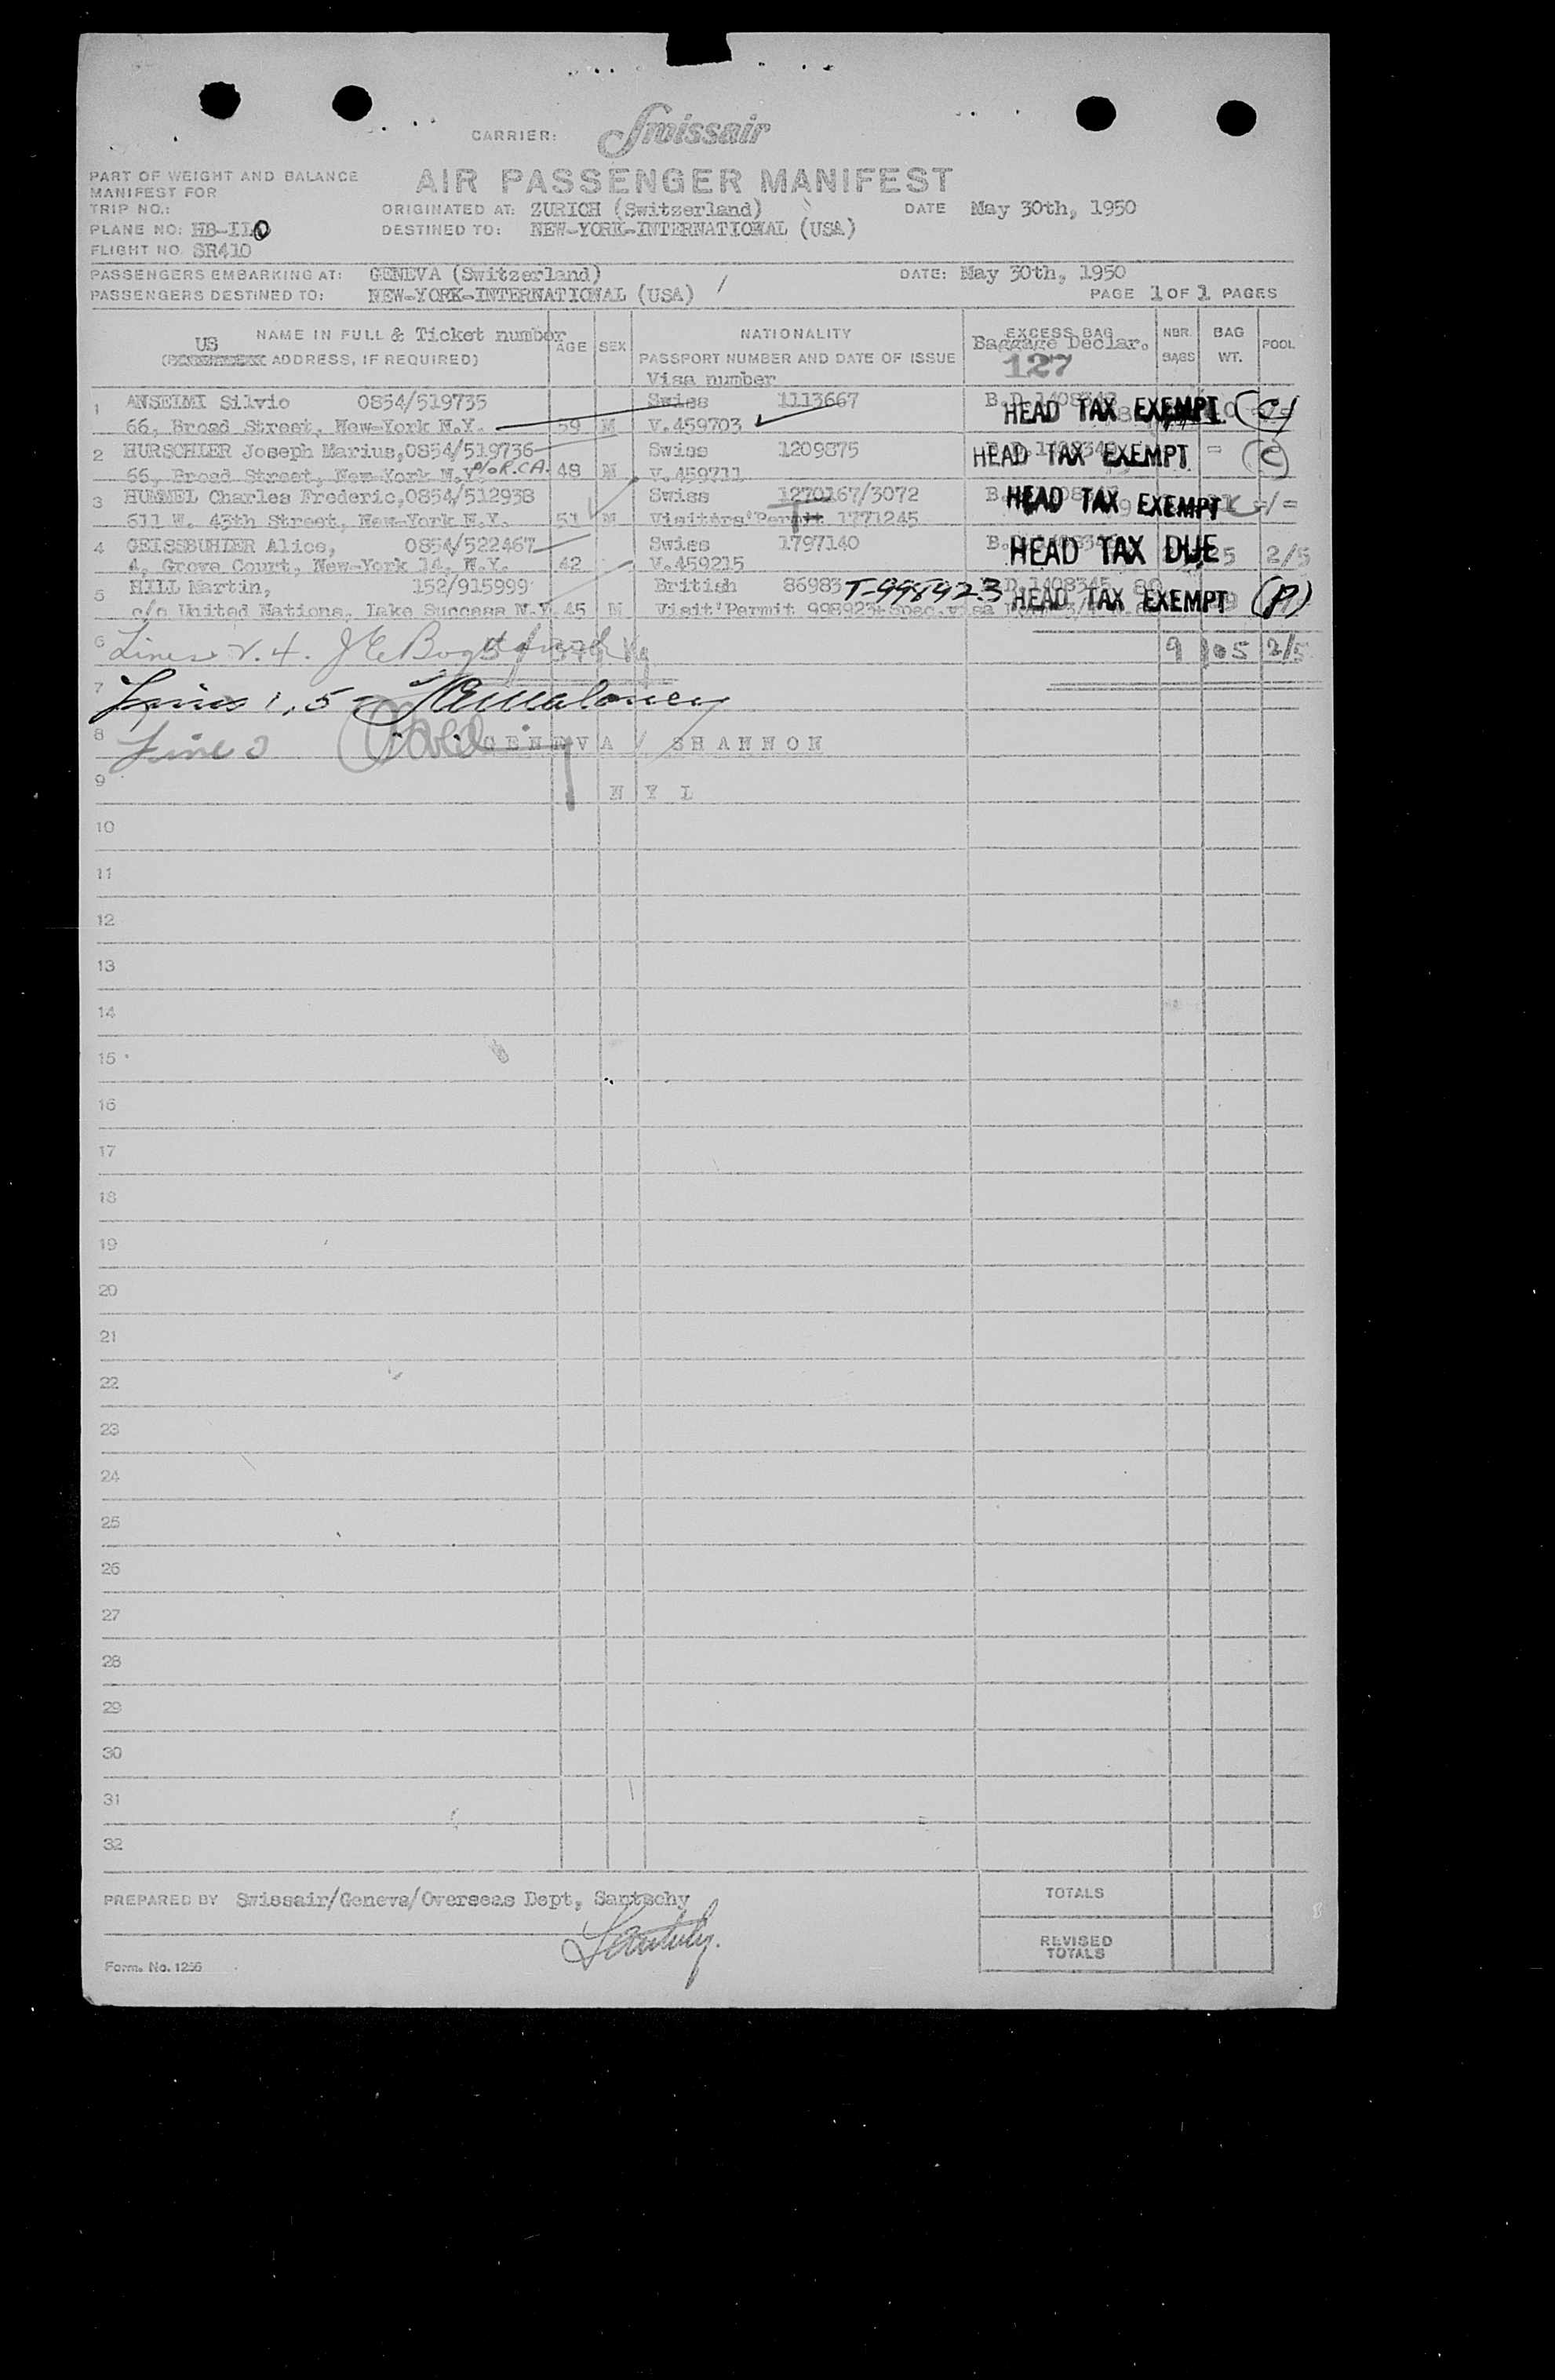 CARRIER: Swissair
AIR PASSENGER MANIFEST
PART OF WEIGHT AND BALANCE
MANIFEST FOR
TRIP NO.:
ORIGINATED AT: ZURICH (Switzerland) DATE May 30th, 1950
PLANE NO: HB-ILO DESTINED TO: NEW-YORK-INTERNATIONAL (USA)
FLIGHT NO. SR410
PASSENGERS EMBARKING AT: GENEVA (Switzerland) DATE: May 30th, 1950
PASSENGERS DESTINED TO: NEW-YORK-INTERNATIONAL (USA) PAGE 1 OF 1 PAGES
NAME IN FULL & Ticket number AGE SEX NATIONALITY EXCESS BAG NBR. BAGS BAG WT. POOL
US ADDRESS, IF REQUIRED) PASSPORT NUMBER AND DATE OF ISSUE Baggage Declar.
Visa number 127
1 ANSELMI Silvio 0854/519735 Swiss 1113667 HEAD TAX EXEMPT (C)
66, Broad Street, New-York N.Y. 59 M V.459703
2 HURSCHLER Joseph Marius, 0854/519736 Swiss 1209875 HEAD TAX EXEMPT = (C)
66, Broad Street, New-York N.Y. c/o R.C.A. 48 M V.459711
3 HUMMEL Charles Frederic, 0854/512938 Swiss 1270167/3072 HEAD TAX EXEMPT
611 W. 43th Street, New-York N.Y. 51 M Visitors'Permit 1771245
4 GEISSBUHLER Alice, 0854/522467 Swiss 1797140 HEAD TAX DUE 2/5
4, Grove Court, New-York 14, N.Y. 42 V.459215
5 HILL Martin, 152/915999 British 86983 T-998923 B.D.1408345
c/o United Nations, Lake Success N.Y. 45 M Visit'Permit 998923+Spec.visa HEAD TAX EXEMPT (P)
6 Lines 2.4. 9 105 2/5
7 Lines 1,5 - Maloney
8 Line 3 GENEVA / SHANNON
9 NYL
10
11
12
13
14
15
16
17
18
19
20
21
22
23
24
25
26
27
28
29
30
31
32
PREPARED BY Swissair/Geneva/Overseas Dept, Santschy
TOTALS
Santschy.
REVISED TOTALS
Form. No. 1256